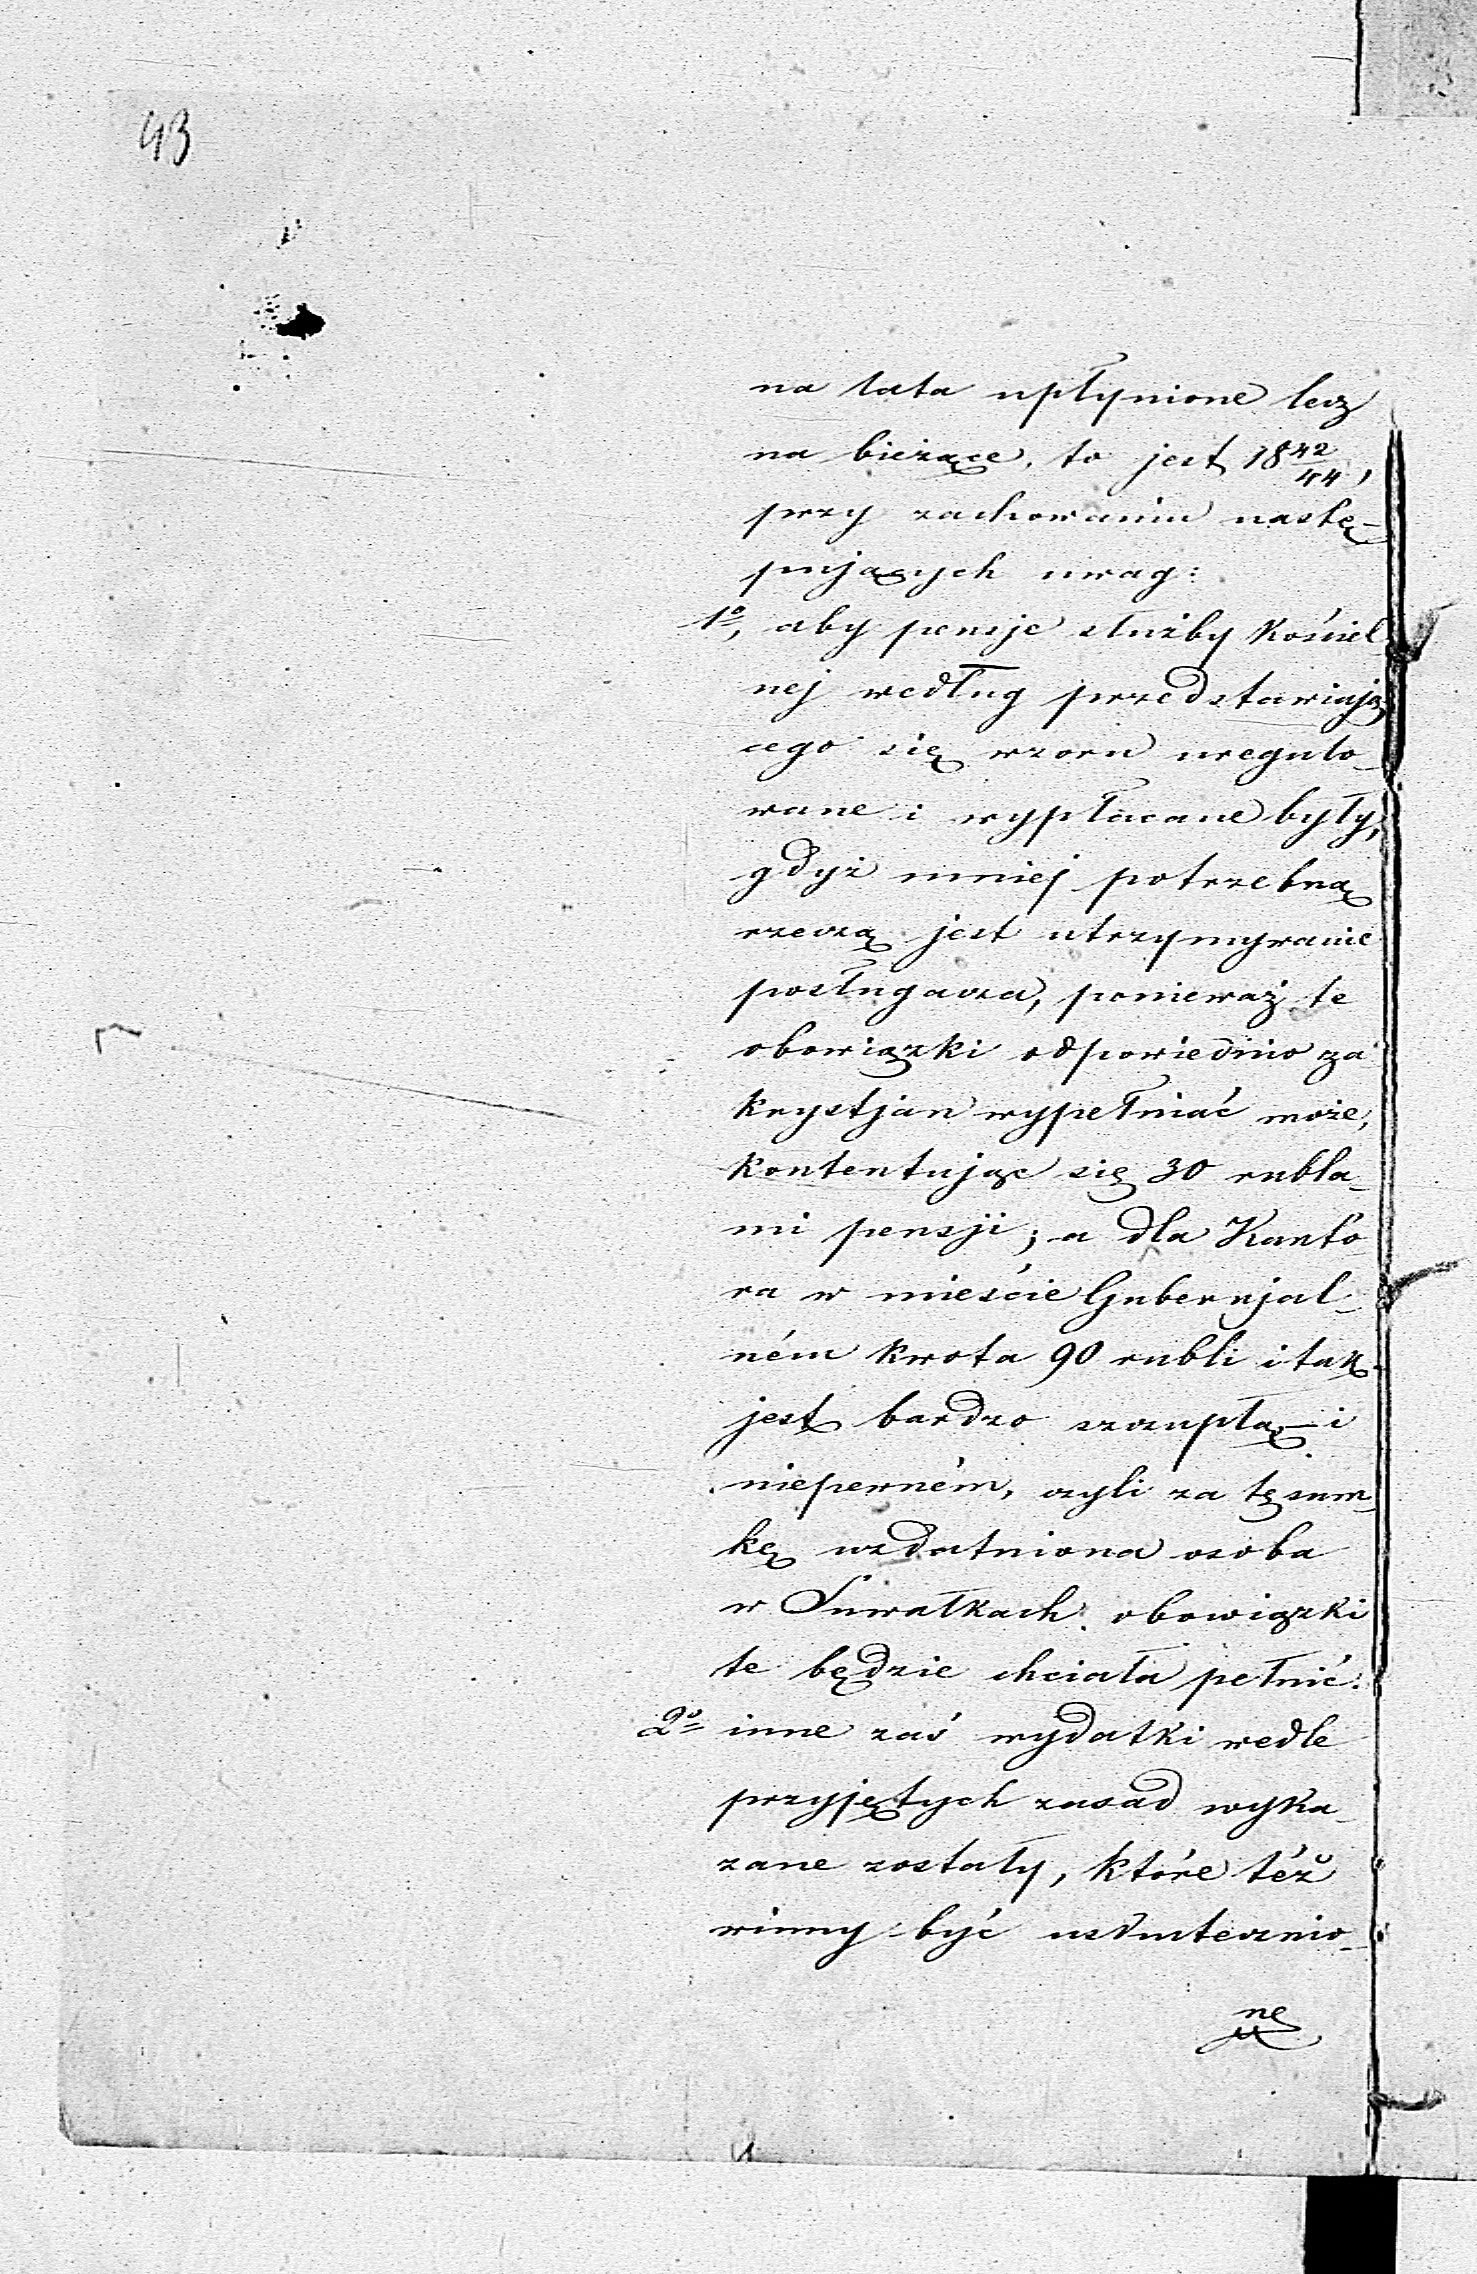 43
na lata upłynione lecz
na bieżące, to jest 18 42/44,
przy zachowaniu nastę-
pujących uwag:
1º, aby pensje służby Kościel-
nej według przedstawiają-
cego się wzoru uregulo-
wane i wypłacane były,
gdyż mniej potrzebną
rzeczą jest utrzymywanie
posługacza, ponieważ te
obowiązki odpowiednio za
krystjan wypełniać może,
kontentując się 30 rubla-
mi pensji; a dla Kanto-
ra w mieście Gubernjal-
ném kwota 90 rubli i tak
jest bardzo szczupłą – i
niepewném, czyli za tę sum-
kę uzdatniona osoba
w Suwałkach obowiązki
te będzie chciała pełnić.
2º inne zaś wydatki wedle
przyjętych zasad wyka-
zane zostały, które téż
winny być uskutecznio-
ne